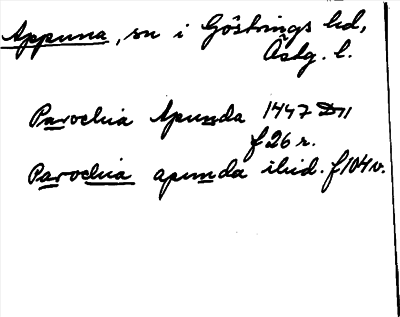 Appuna, sn i Göstrings hd,
Östg. l.
Parochia Apunda 1447 D11
f 26 r.
Parochia apunda ibid. f 104 v.